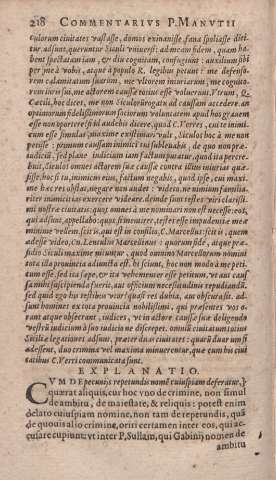 218 COMMENTARIVS P. MANVTII
culorum ciuitates vastasse, domos exinanisse, fana spoliasse dictur
adsunt, queruntur Siculi vniuersi: ad meam fidem, quam habent
spectatam iam, & diu cognitam, confugiunt: auxilium sibi
per me à vobis, atque à populo R. legibus petunt: me defensorem
calamitatum suarum, me vltorem iniuriarum, me cognitorem
iuris sui, me actorem causæ totius esse voluerunt. Vtrum, Q.
Cæcili, hoc dices, me non Siculorum rogatu ad causam accedere. an
optimorum fidelissimorum sociorum voluntatem apud hos grauem
esse non oportere? si id audebis dicere, quod C. Verres, cui te inimicum
esse simulas, maxime existimari vult, Siculos hoc à me non
petisse: primum causam inimici tui subleuabis, de quo non præiudicium,
sed plane iudicium iam factum putatur, quod ita percrebuit,
Siculos omnes actorem suæ causæ contra illius iniurias quæsisse.
hoc si tu, inimicus eius, factum negabis, quod ipse, cui maxime
hæc res obstat, negare non audet: videto, ne nimium familiariter
inimicitias exercere videare. deinde sunt testes viri clarissimi
nostræ ciuitatis, quos omneis à me nominari non est necesse: eos,
qui adsunt, appellabo: quos, si mentirer, testes esse impudentiæ meæ
minime vellem. scit is, qui est in consilio, C. Marcellus: scit is, quem
adesse video, Cn. Lentulus Marcellinus: quorum fide, atque præsidio
Siculi maxime nituntur, quod omnino Marcellorum nomini
tota illa prouincia adiuncta est. hi sciunt, hoc non modo à me petitum
esse, sed ita sæpe, & ita vehementer esse petitum, vt aut causa
mihi suscipienda fuerit, aut officium necessitudinis repudiandum.
sed quid ego his testibus vtor quasi res dubia, aut obscura sit. adsunt
homines ex tota prouincia nobilissimi, qui præsentes vos orant
atque obsecrant, iudices, vt in actore causæ suæ deligendo
vestrum iudicium à suo iudicio ne discrepet. omnium ciuitatum totius
Siciliæ legationes adsunt, præter duas ciuitates: quarum duarum si
adessent, duo crimina vel maxima minuerentur, quæ cum his ciuitatibus
C. Verri communicata sunt.
EXPLANATIO.
CVM DE pecunijs repetundis nomē cuiuspiam deferatur,]
quærat aliquis, cur hoc vno de crimine, non simul
de ambitu, de maiestate, & reliquis: potest enim
delato cuiuspiam nomine, non tam de repetundis, quā
de quouis alio crimine, oriri certamen inter eos, qui accusare
cupiunt: vt inter P. Sullam, qui Gabinij nomen de
ambitu